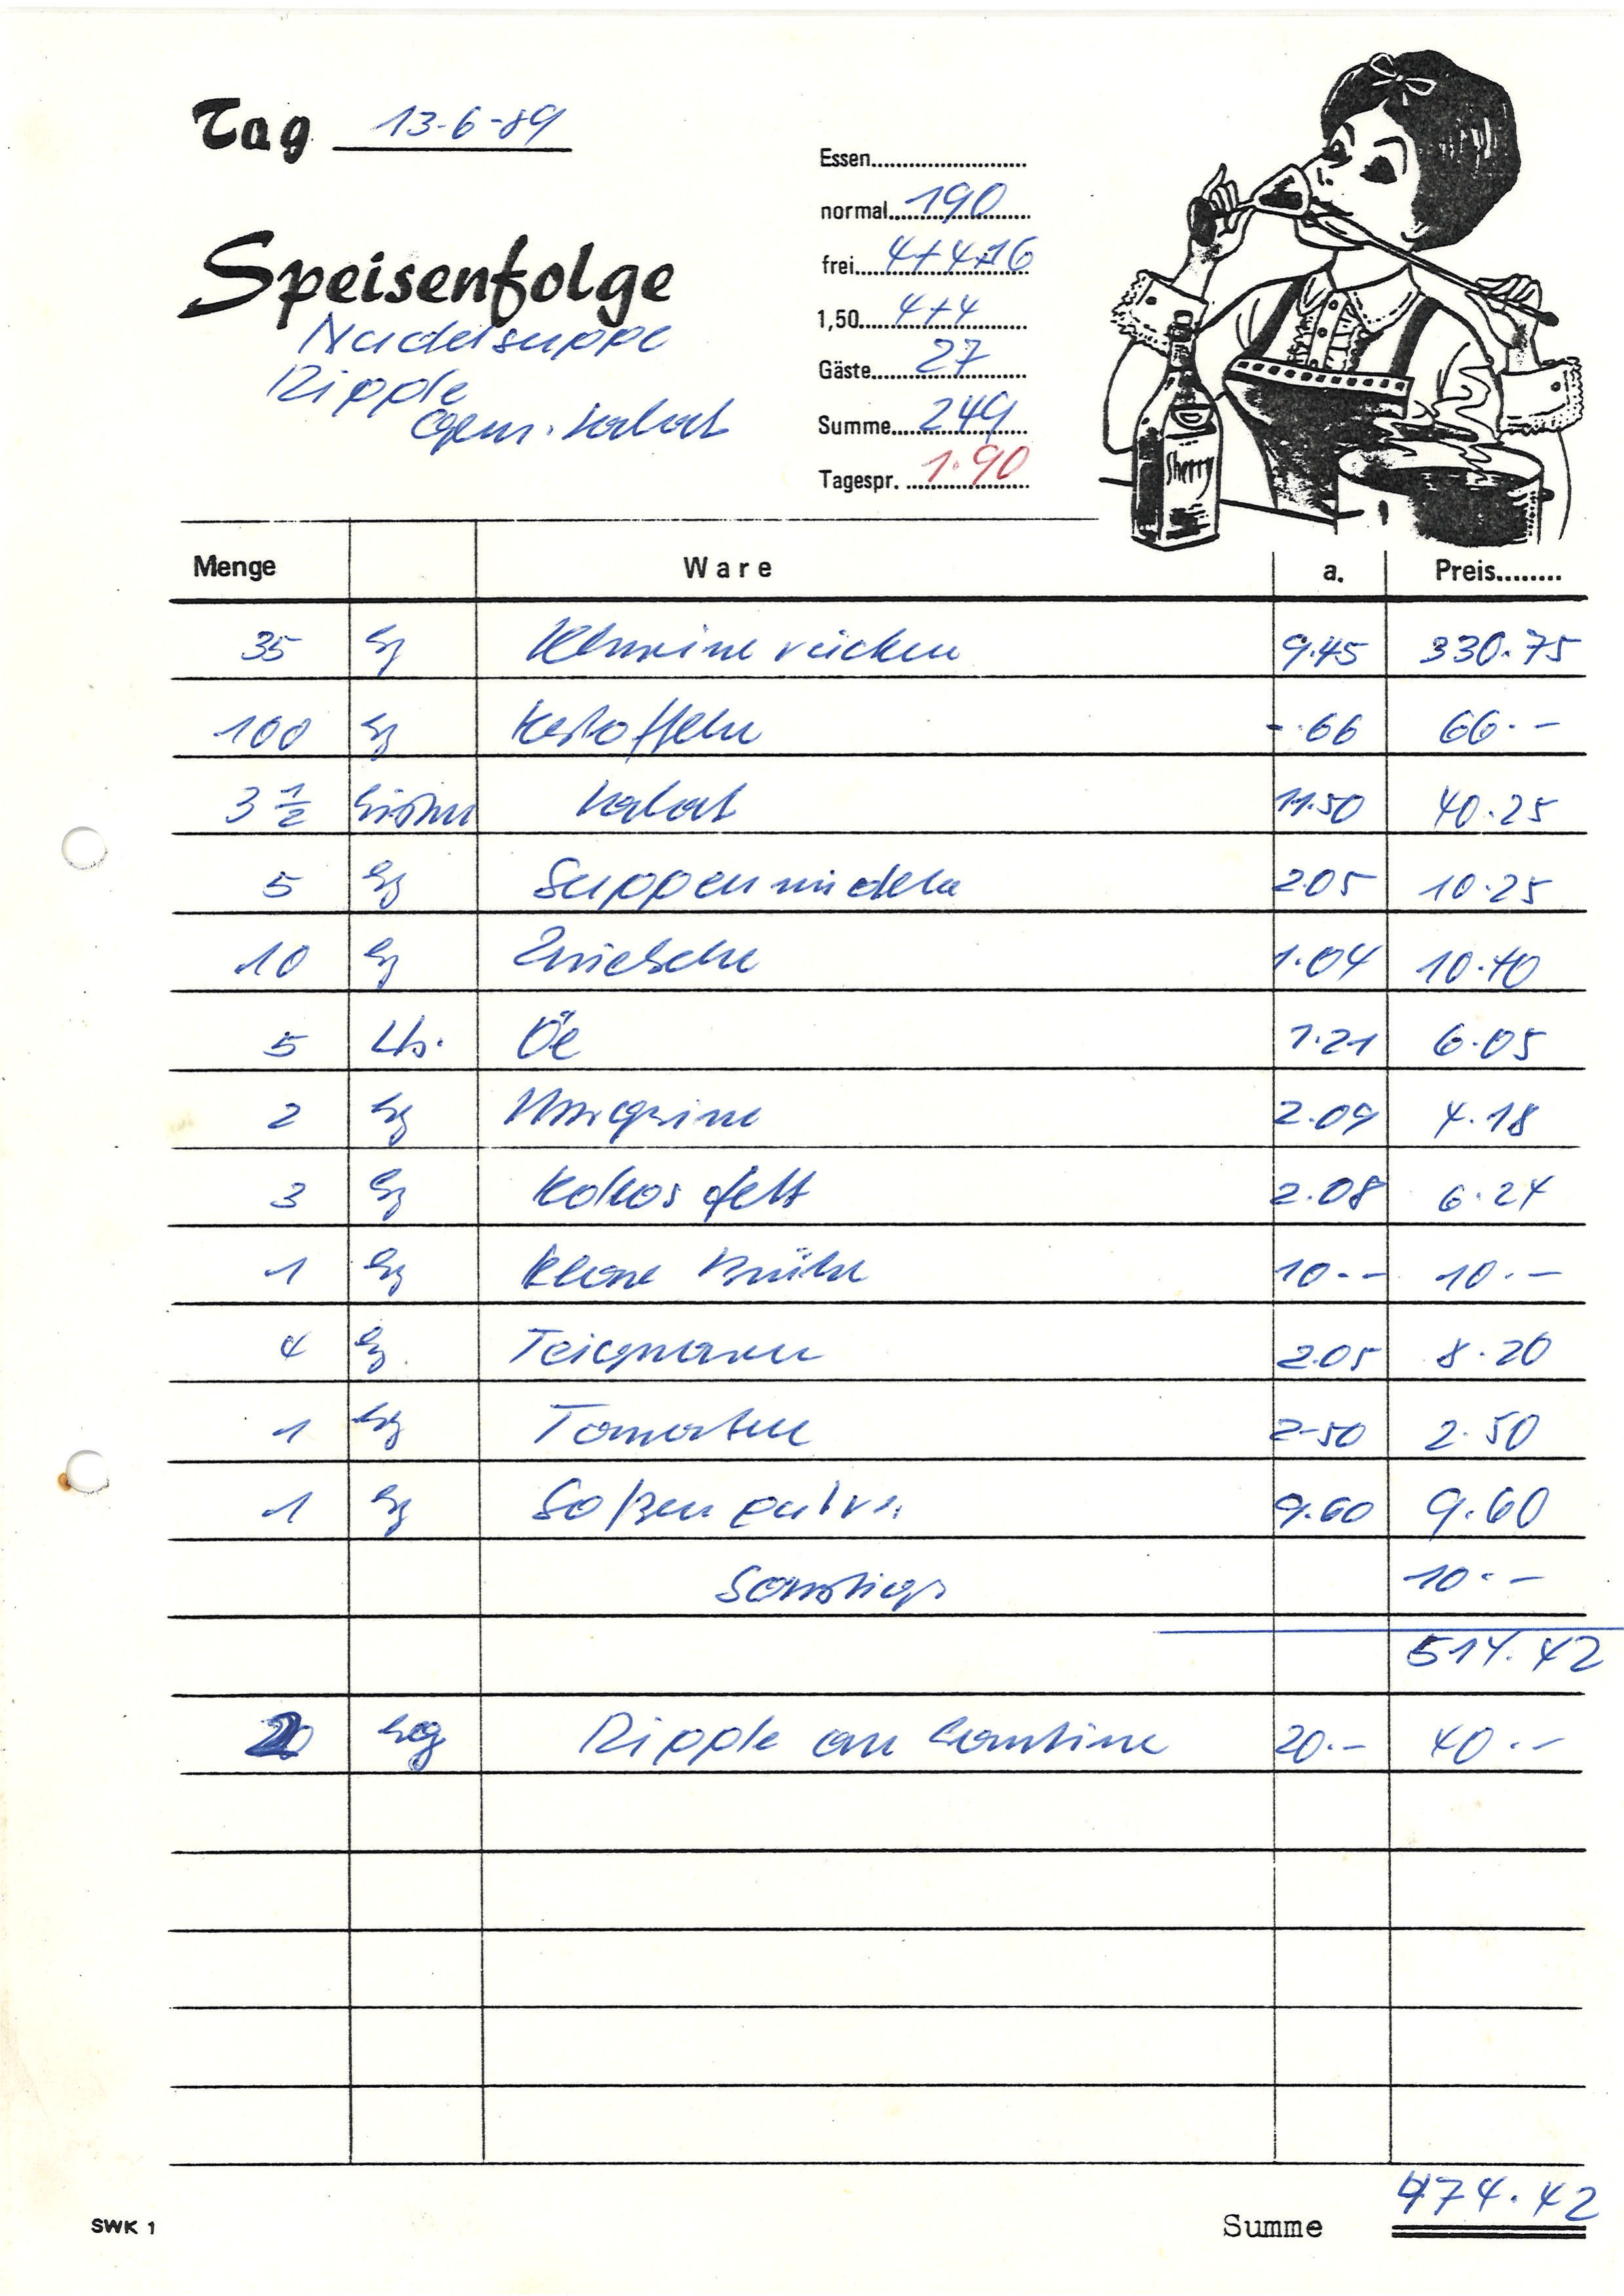 Tag 13-6-89
Speisenfolge
Nudelsuppe
Ripple
Gem. Salat
Essen
normal 190
frei 4+4+16
1,50 4+4
Gäste 27
Summe 249
Tagespr. 1.90
Sherry
Menge Ware a. Preis
35 kg Schweinerücken 9.45 330.75
100 kg Kartoffeln -.66 66.-
3 1/2 Kisten Salat 11.50 40.25
5 kg Suppennudeln 2.05 10.25
10 kg Zwiebeln 1.04 10.40
5 Ltr. Öl 1.21 6.05
2 kg Margarine 2.09 4.18
3 kg Kokosfett 2.08 6.24
1 kg klare Brühe 10.- 10.-
4 kg Teigwaren 2.05 8.20
1 kg Tomaten 2.50 2.50
1 kg Soßenpulver 9.60 9.60
Sonstiges 10.-
514.42
2 kg Ripple an Kantine 20.- 40.-
SWK 1
Summe 474.42